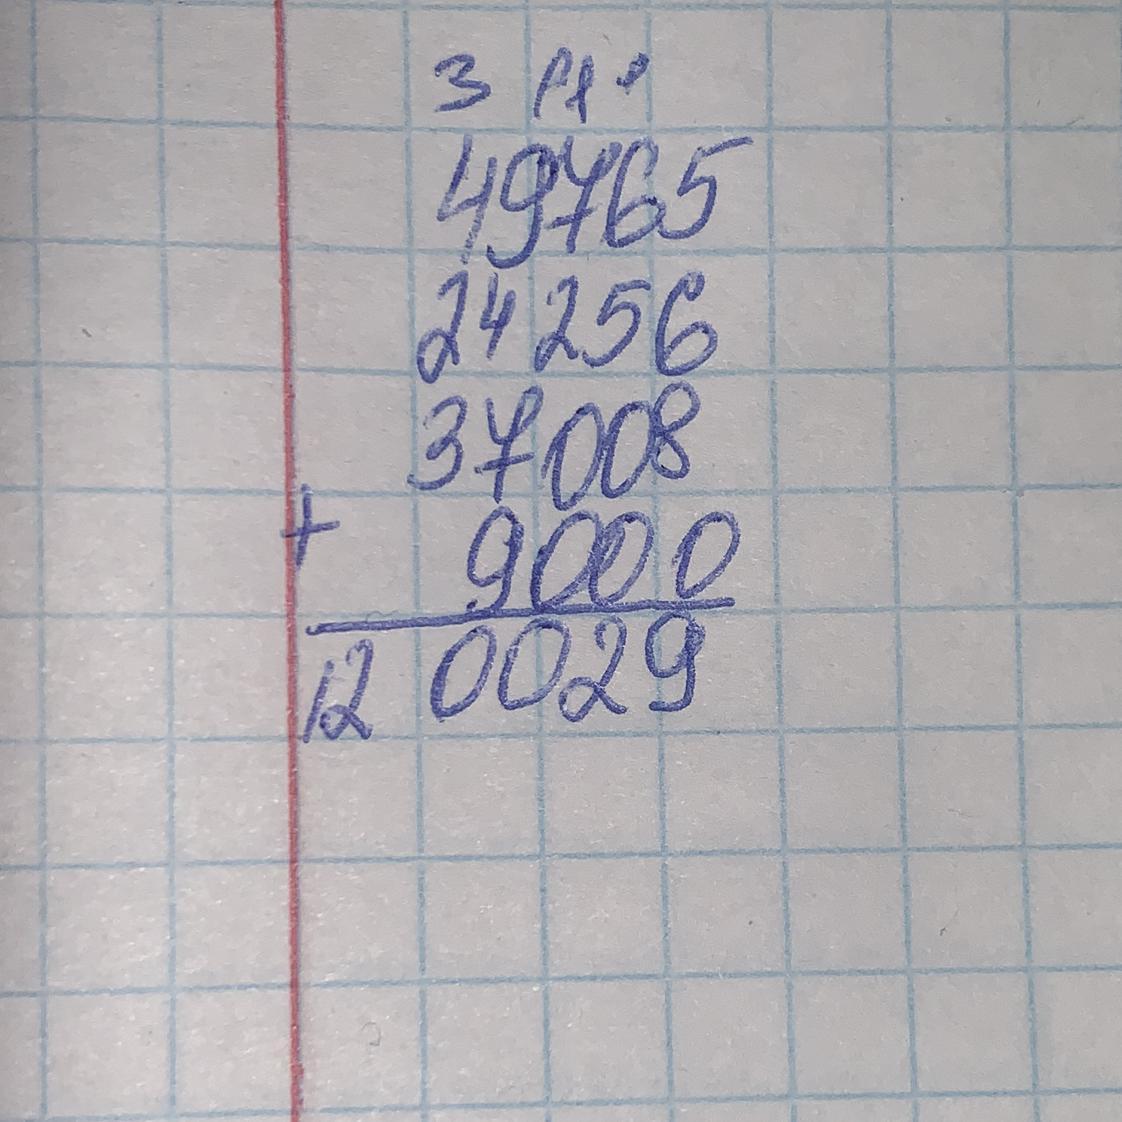 3 111
49765
24256
37008
+ 9000
120029